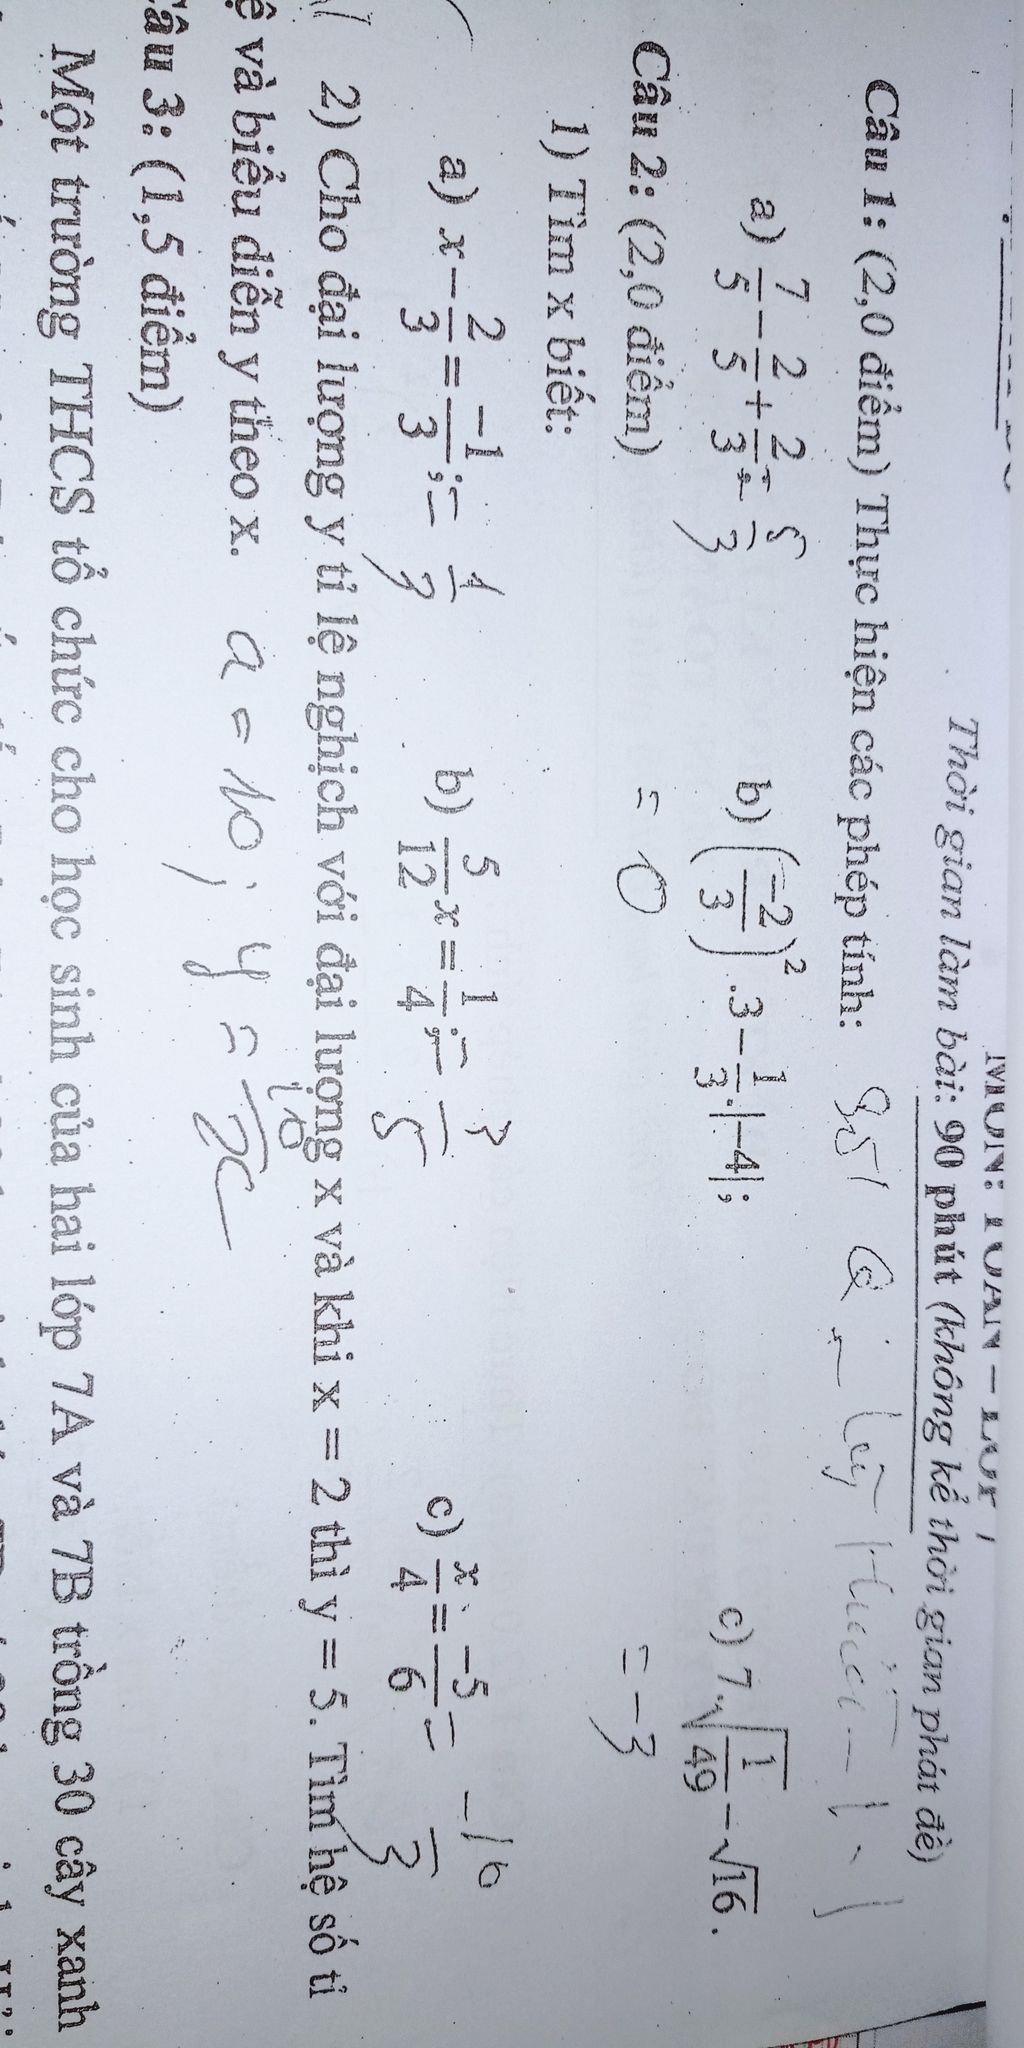 Thời gian làm bài: 90 phút (không kể thời gian phát đề)
Câu 1: (2,0 điểm) Thực hiện các phép tính:
a) 7/5 - 2/5 + 2/3; = 5/3 b) (-2/3)² .3 - 1/3 .|-4|; c) 7.√(1/49) - √16.
= 0 = -3
Câu 2: (2,0 điểm)
1) Tìm x biết:
a) x - 2/3 = -1/3; = 1/3 b) 5/12 x = 1/4; = 3/5 c) x/4 = -5/6 = -10/3
2) Cho đại lượng y tỉ lệ nghịch với đại lượng x và khi x = 2 thì y = 5. Tìm hệ số tỉ
lệ và biểu diễn y theo x. a = 10; y = 10/x
Câu 3: (1,5 điểm)
Một trường THCS tổ chức cho học sinh của hai lớp 7A và 7B trồng 30 cây xanh